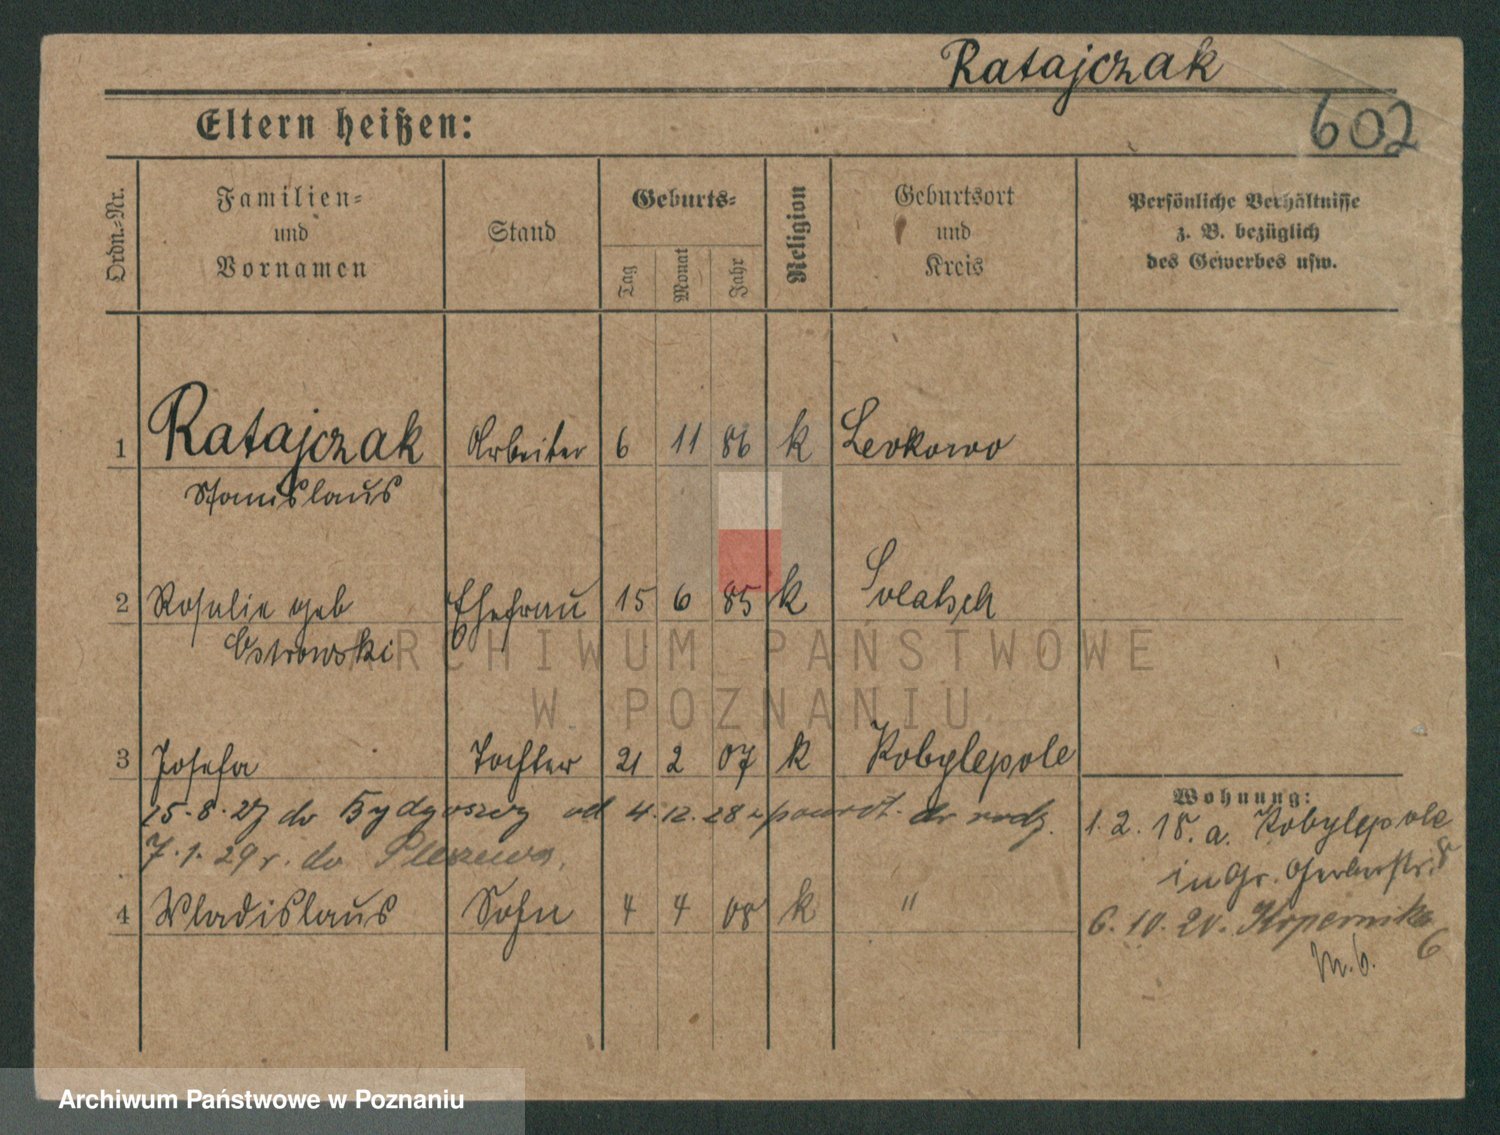 Ratajczak
602
Eltern heißen:
Ordn.-Nr.
Familien- und Vornamen
Stand
Geburts-
Tag
Monat
Jahr
Religion
Geburtsort und Kreis
Persönliche Verhältnisse z. B. bezüglich des Gewerbes usw.
1 Ratajczak Arbeiter 6 11 86 k Levkowo
Stanislaus
2 Rosalie geb Ehefrau 15 6 85 k Solatsch
Ostrowski
3 Josefa Tochter 21 2 07 k Kobylepole
25.8.27 do Bydgoszcz od 4.12.28 z powrot. do rodz.
7.1.29 r. do Pleszewa.
4 Wladislaus Sohn 4 4 08 k "
Wohnung:
1.2.18. a. Kobylepole
in Gr. Gerberstr. 8
6.10.20. Kopernika 6
m.6.
ARCHIWUM PAŃSTWOWE
W POZNANIU
Archiwum Państwowe w Poznaniu